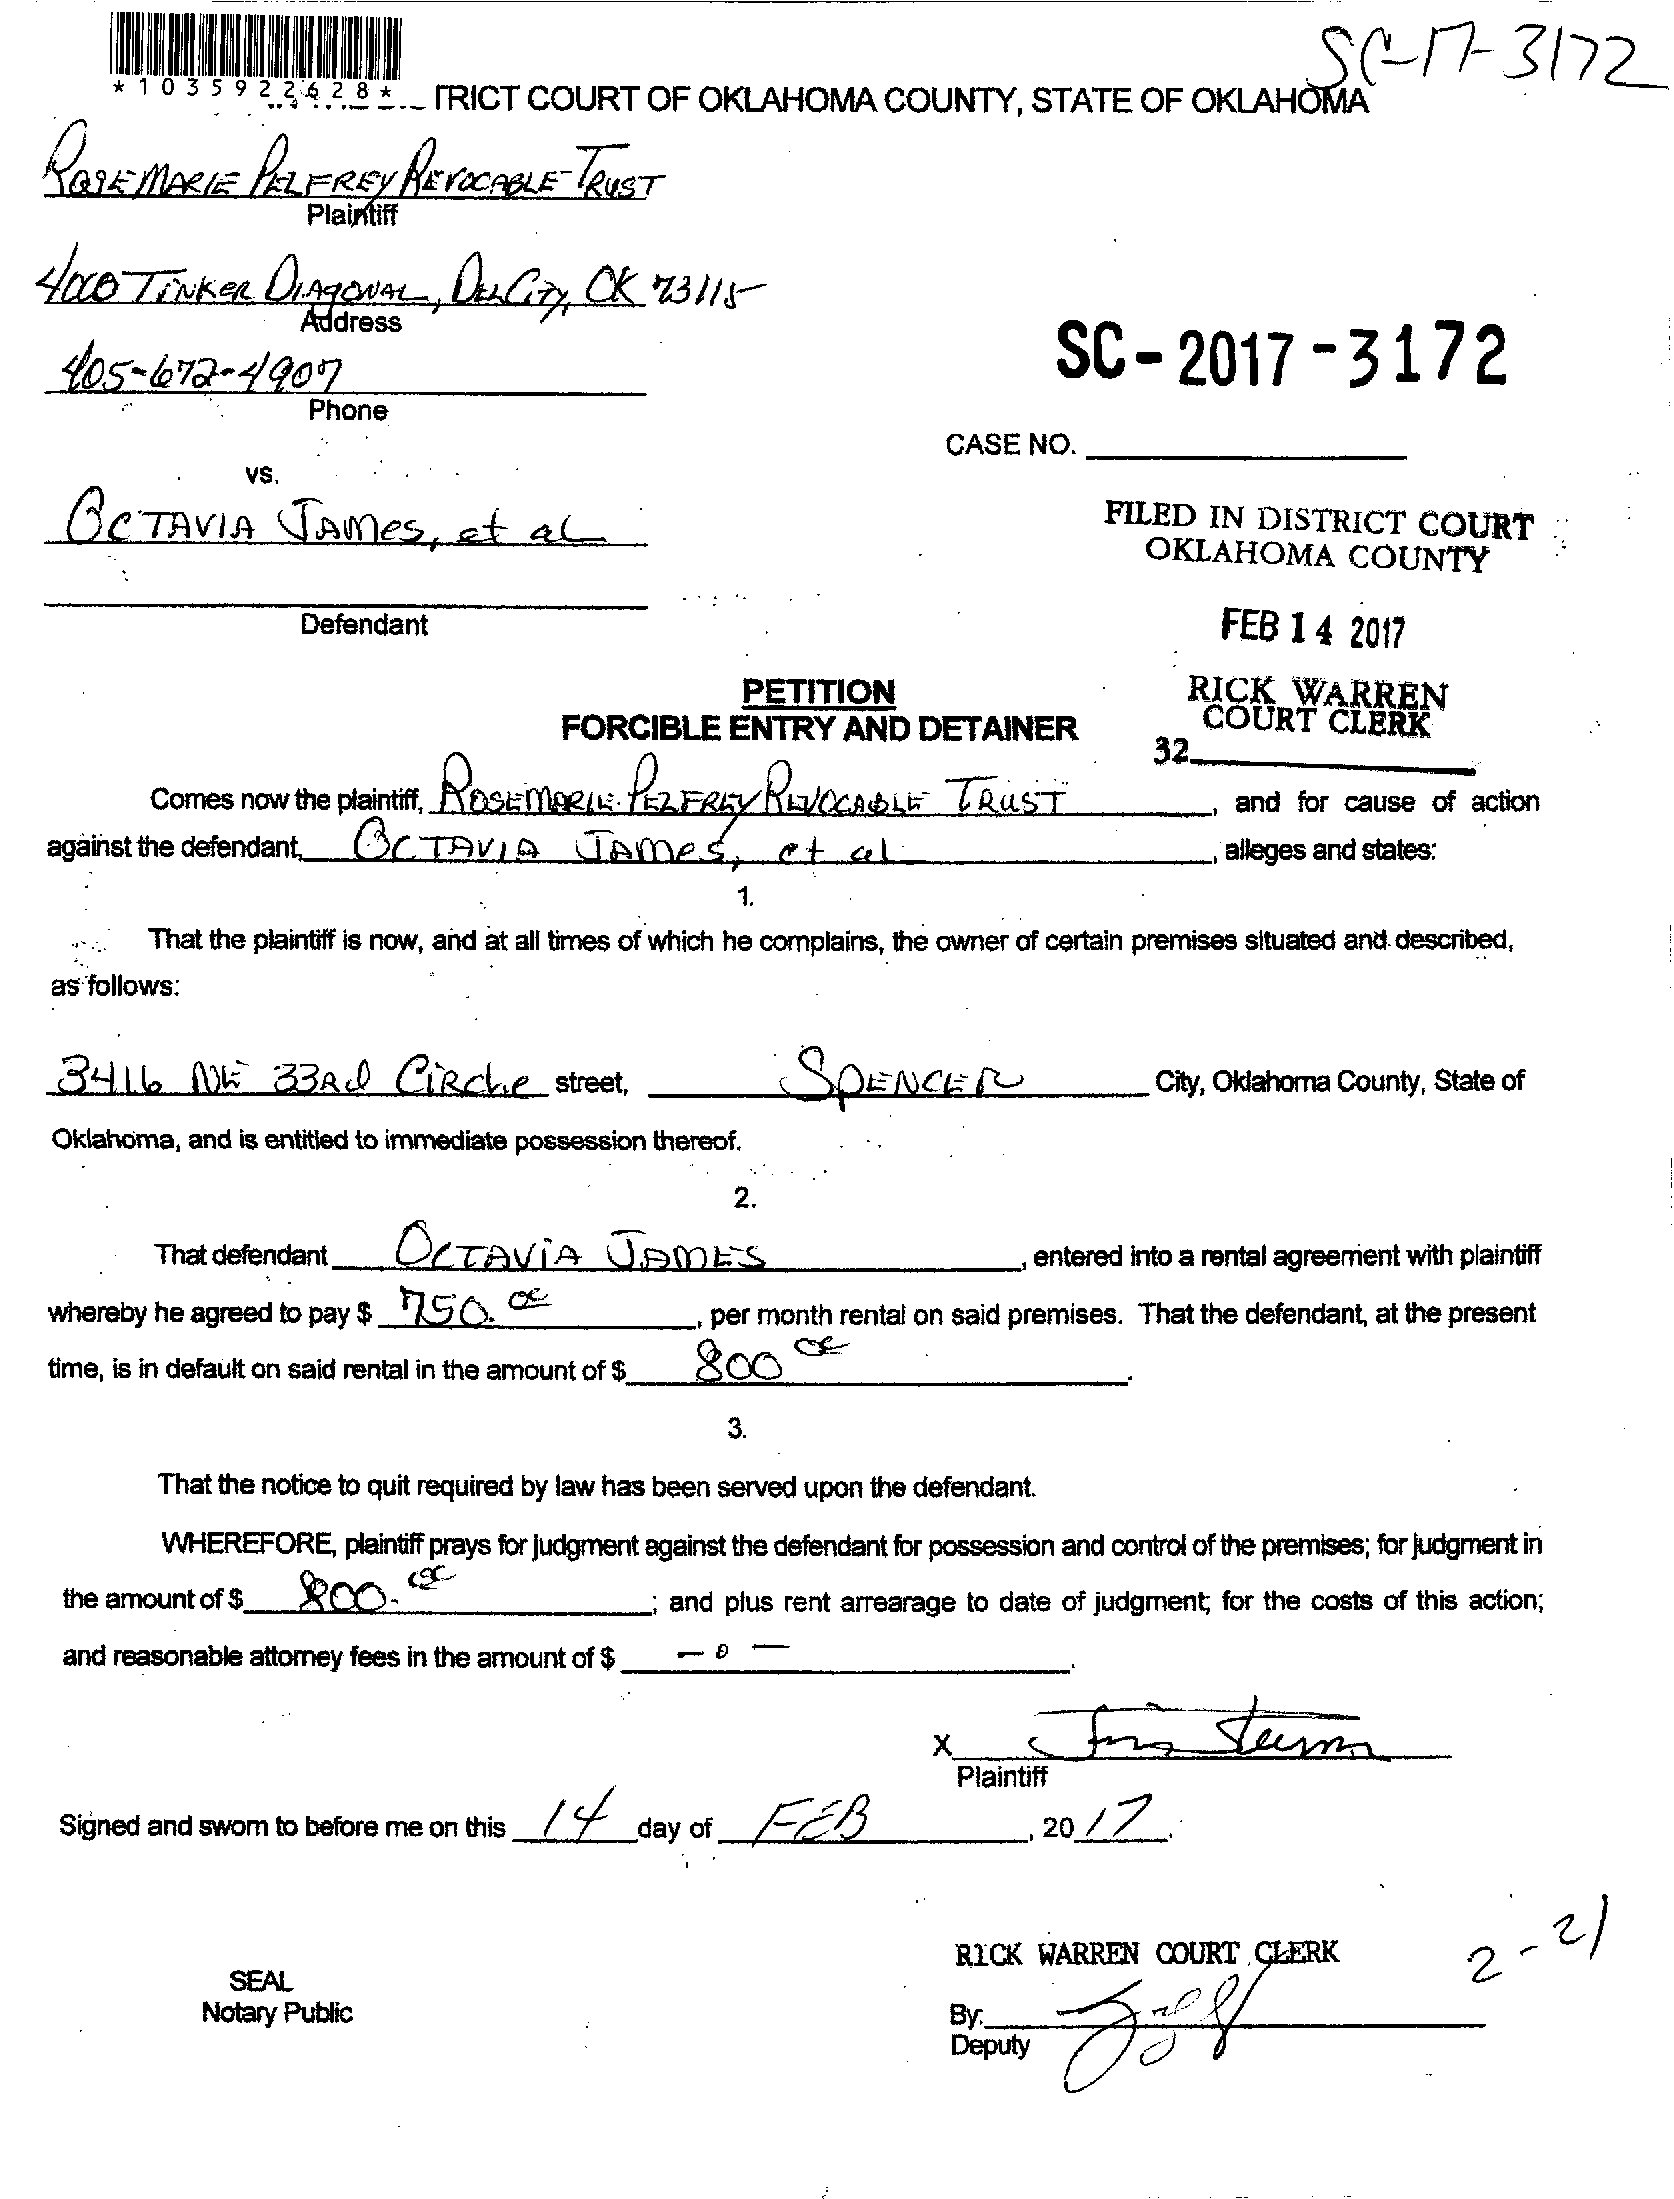 SC-17-3172
*1035922628*
TRICT COURT OF OKLAHOMA COUNTY, STATE OF OKLAHOMA
ROSEMARIE PELFREY REVOCABLE TRUST
Plaintiff
4000 TINKER DIAGONAL, DEL CITY, OK 73115
Address
405-672-4907
Phone
SC-2017-3172
CASE NO.
vs.
OCTAVIA JAMES, et al
Defendant
FILED IN DISTRICT COURT
OKLAHOMA COUNTY
FEB 14 2017
RICK WARREN
COURT CLERK
32
PETITION
FORCIBLE ENTRY AND DETAINER
Comes now the plaintiff, ROSEMARIE PELFREY REVOCABLE TRUST, and for cause of action
against the defendant, OCTAVIA JAMES, et al, alleges and states:
1.
That the plaintiff is now, and at all times of which he complains, the owner of certain premises situated and described,
as follows:
3416 NE 33RD CIRCLE street, SPENCER City, Oklahoma County, State of
Oklahoma, and is entitled to immediate possession thereof.
2.
That defendant OCTAVIA JAMES, entered into a rental agreement with plaintiff
whereby he agreed to pay $ 750.00, per month rental on said premises. That the defendant, at the present
time, is in default on said rental in the amount of $ 800 00.
3.
That the notice to quit required by law has been served upon the defendant.
WHEREFORE, plaintiff prays for judgment against the defendant for possession and control of the premises; for judgment in
the amount of $ 800.00; and plus rent arrearage to date of judgment; for the costs of this action;
and reasonable attorney fees in the amount of $ -0-.
X
Plaintiff
Signed and sworn to before me on this 14 day of FEB, 2017.
RICK WARREN COURT CLERK
2-21
SEAL
Notary Public
By:
Deputy